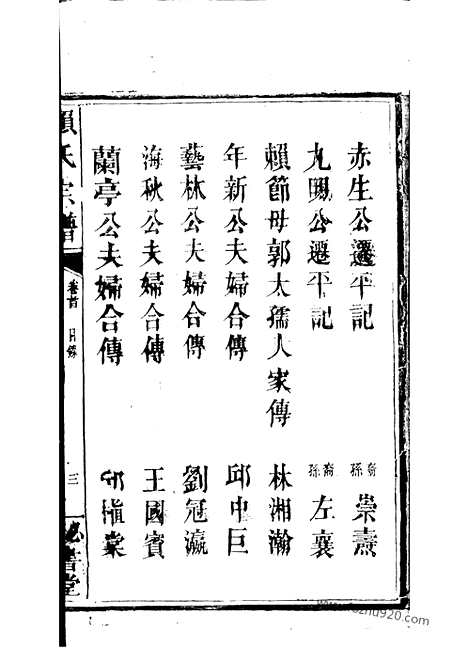 赤生公遷平記 裔孫 崇燾
九賜公遷平記 裔孫 左襄
賴節母郭太孺人家傳 林湘瀚
年新公夫婦合傳 邱中巨
藝林公夫婦合傳 劉冠瀛
海秋公夫婦合傳 王國賓
蘭亭公夫婦合傳 邱植棠
賴氏宗譜 卷首 目錄 三 書堂